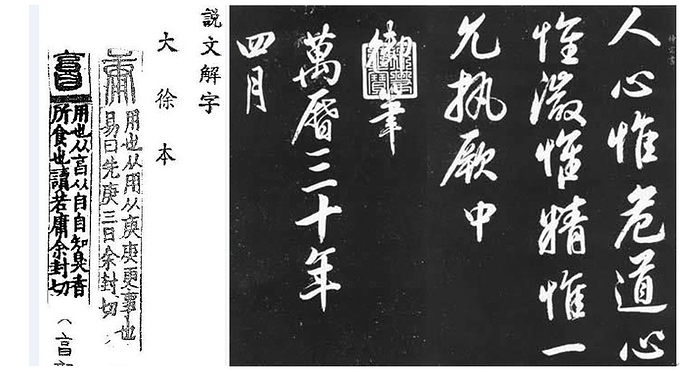 人心惟危道心
惟微惟精惟一
允執厥中
御筆
萬曆三十年
四月
説文解字
大徐本
用也从用从庚庚更事也
易曰先庚三日余封切
用也从亯从自自知臭香
所食也讀若庸余封切
（亯部